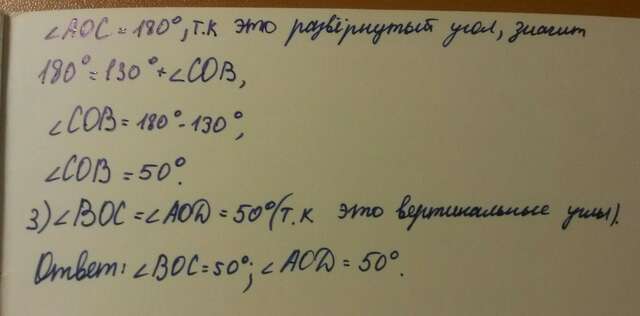 ∠AOC = 180°, т.к это развёрнутый угол, значит
180° = 130° + ∠COB,
∠COB = 180° - 130°,
∠COB = 50°.
3) ∠BOC = ∠AOD = 50° (т.к это вертикальные углы).
Ответ: ∠BOC = 50°; ∠AOD = 50°.